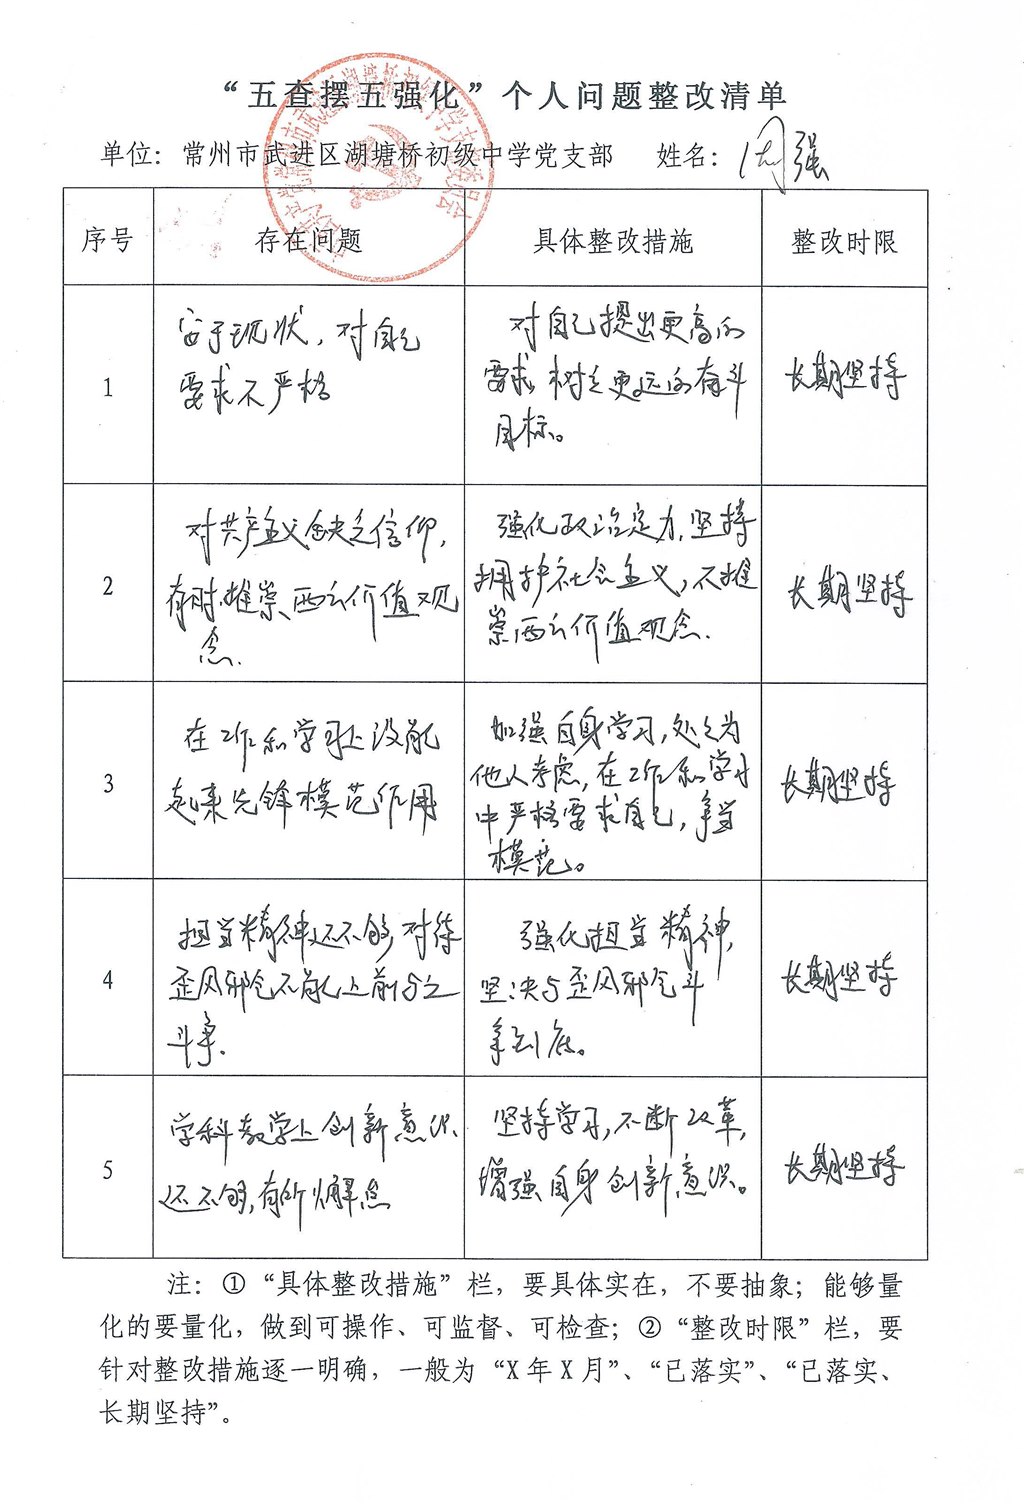 “五查摆五强化”个人问题整改清单
单位：常州市武进区湖塘桥初级中学党支部 姓名：周强
序号 存在问题 具体整改措施 整改时限
1
安于现状，对自己
要求不严格
对自己提出更高的
要求 树立更远的奋斗
目标。
长期坚持
2
对共产主义缺乏信仰，
有时推崇西方价值观
念.
强化政治定力,坚持
拥护社会主义，不推
崇西方价值观念.
长期坚持
3
在工作和学习上没能
起来先锋模范作用
加强自身学习,处处为
他人考虑,在工作和学习
中严格要求自己，争当
模范。
长期坚持
4
担当精神还不够,对待
歪风邪气不能上前与之
斗争.
强化担当精神,
坚决与歪风邪气斗
争到底。
长期坚持
5
学科教学上创新意识
还不够,有所懈怠
坚持学习,不断改革,
增强自身创新意识。
长期坚持
注：①“具体整改措施”栏，要具体实在，不要抽象；能够量
化的要量化，做到可操作、可监督、可检查；②“整改时限”栏，要
针对整改措施逐一明确，一般为“X年X月”、“已落实”、“已落实、
长期坚持”。